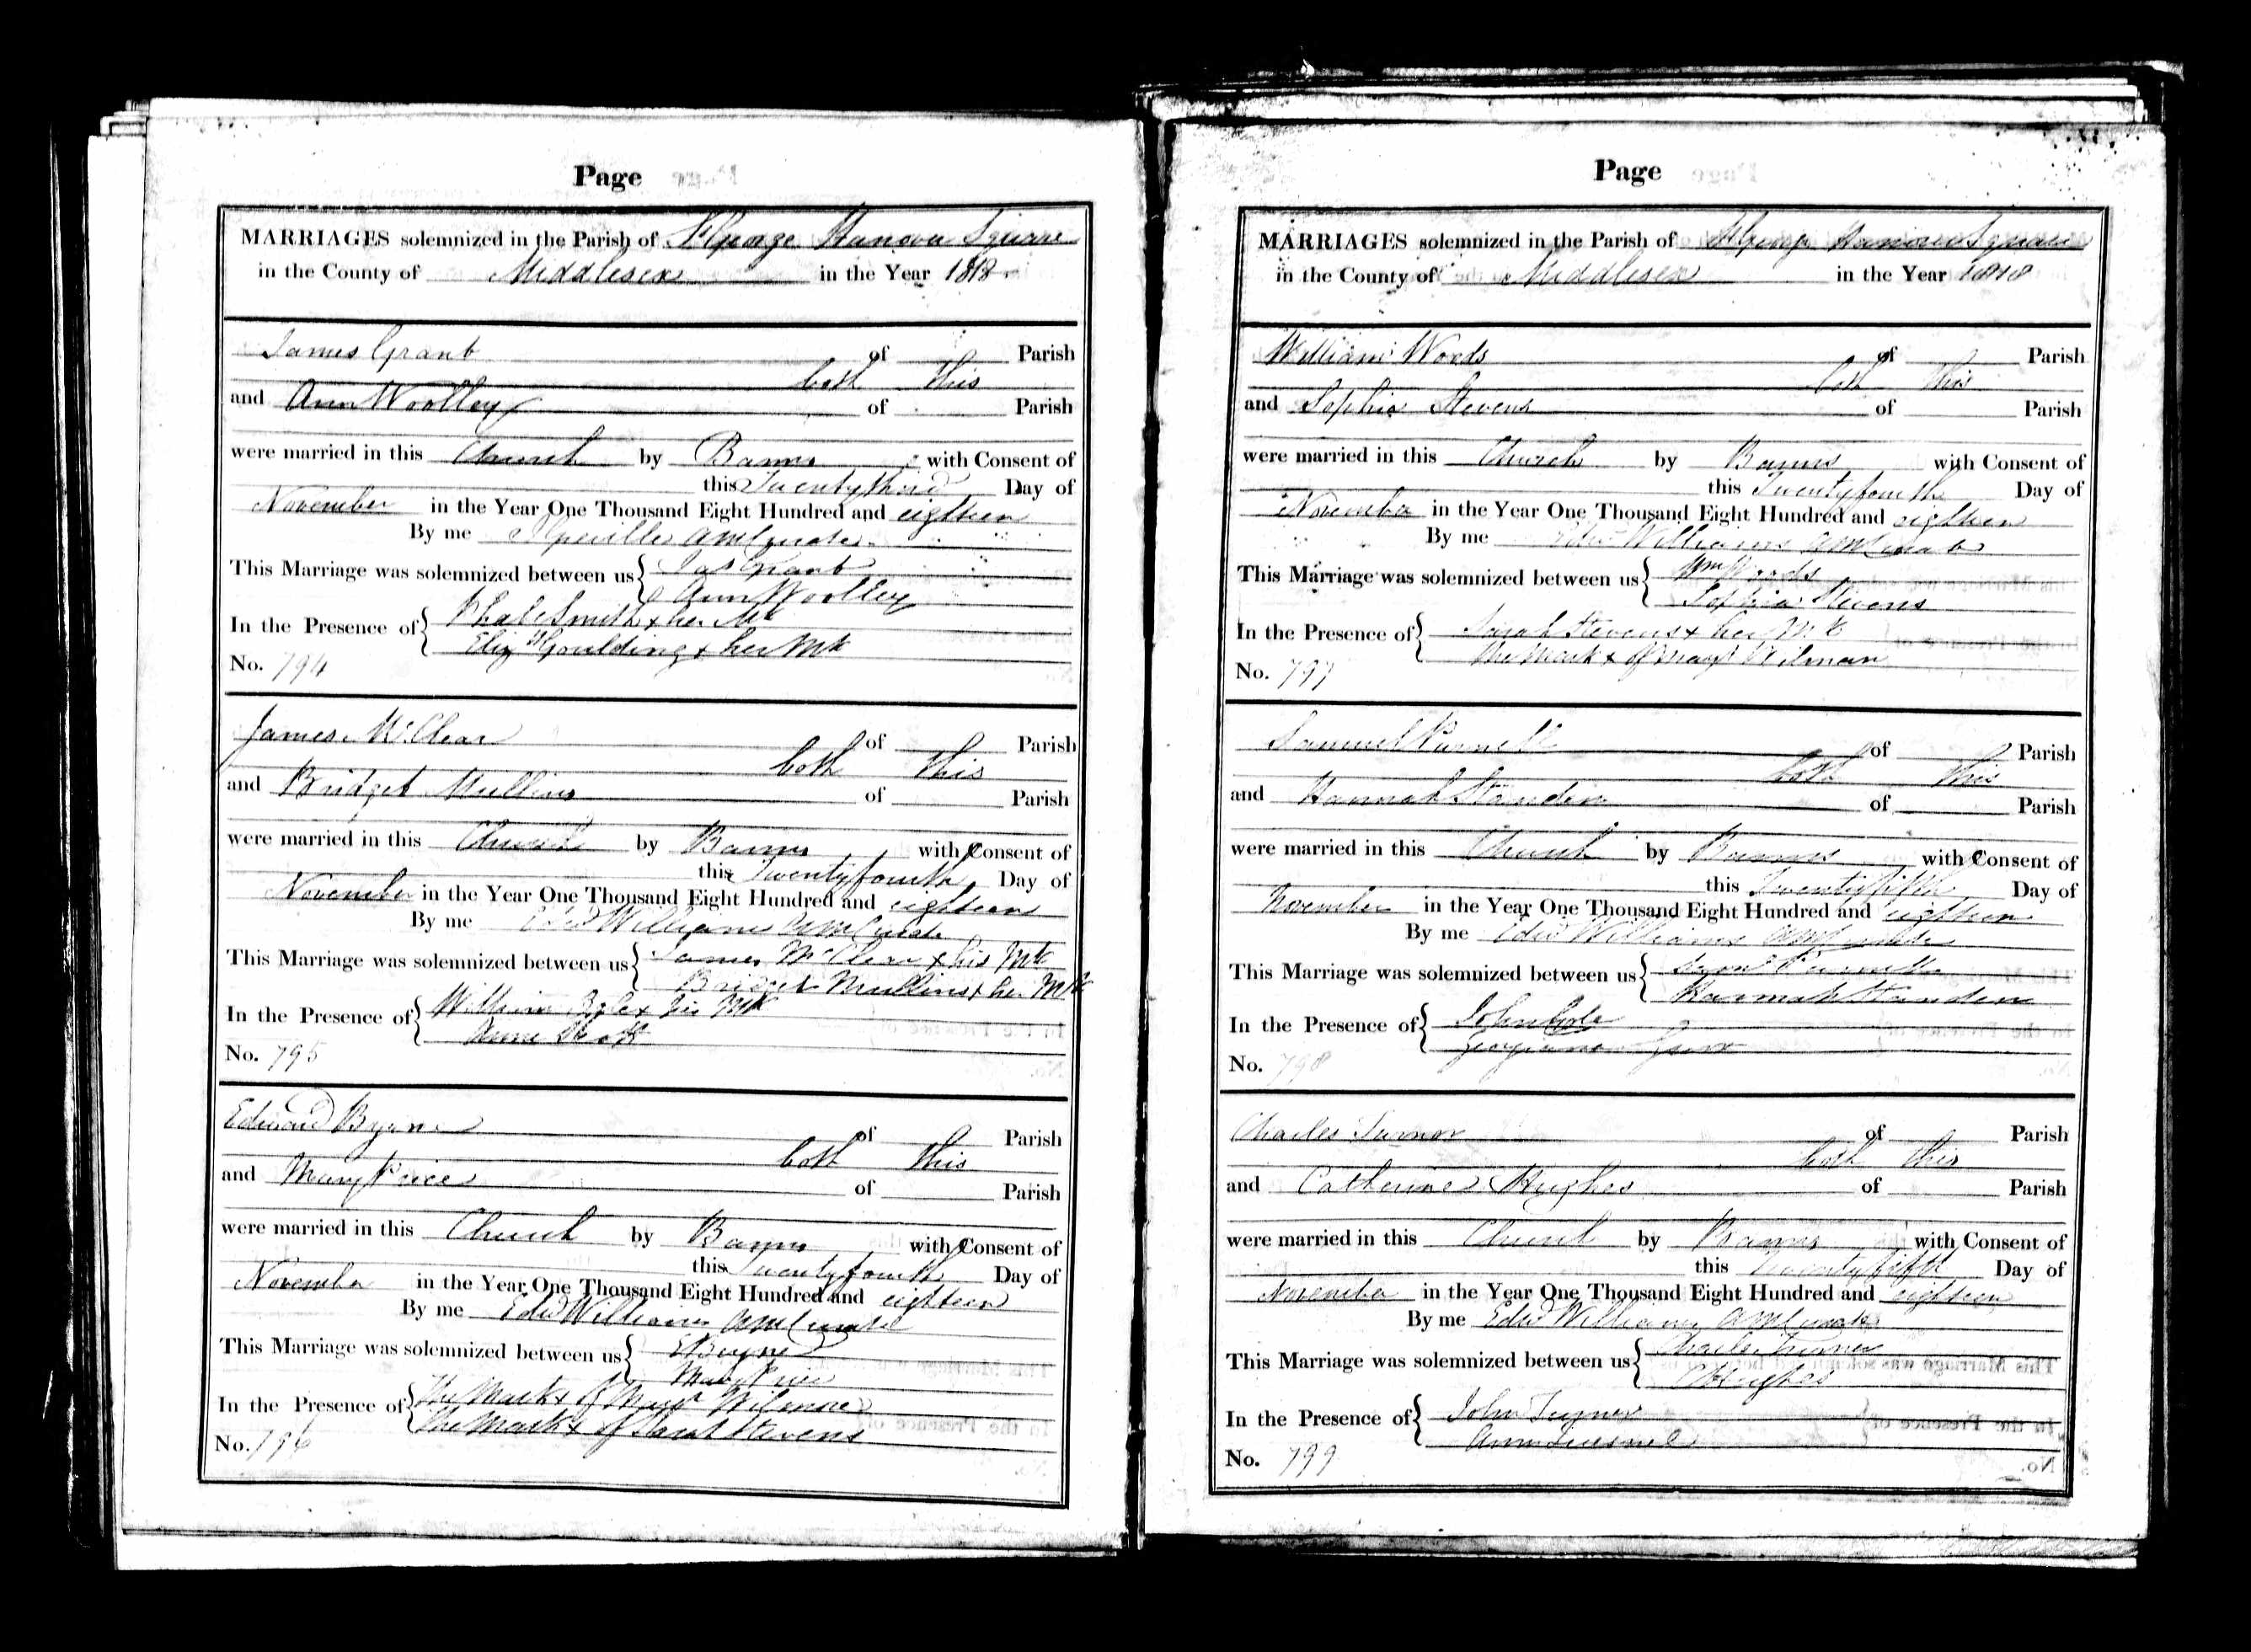 Page
MARRIAGES solemnized in the Parish of St George Hanover Square
in the County of Middlesex in the Year 1818
James Grant of Parish
both this
and Ann Woolley of Parish
were married in this Church by Banns with Consent of
this Twenty third Day of
November in the Year One Thousand Eight Hundred and eighteen
By me AM Curate
This Marriage was solemnized between us { Jas Grant
Ann Woolley
In the Presence of { Smith x her Mk
Eliz Goulding x her Mk
No. 794
James McClear of Parish
both this
and Bridget Mullins of Parish
were married in this Church by Banns with Consent of
this Twenty fourth Day of
November in the Year One Thousand Eight Hundred and eighteen
By me Edwd Williams AM Curate
This Marriage was solemnized between us { James McClear x his Mk
Bridget Mullins x her Mk
In the Presence of { William x his Mk
Anne
No. 795
Edward Byrne of Parish
both this
and Mary Price of Parish
were married in this Church by Banns with Consent of
this Twenty fourth Day of
November in the Year One Thousand Eight Hundred and eighteen
By me Edwd Williams AM Curate
This Marriage was solemnized between us { E Byrne
Mary Price
In the Presence of { The Mark x of Mary
The Mark x of Sarah Stevens
No. 796
Page
MARRIAGES solemnized in the Parish of St George Hanover Square
in the County of Middlesex in the Year 1818
William Woods of Parish
both this
and Sophia Stevens of Parish
were married in this Church by Banns with Consent of
this Twenty fourth Day of
November in the Year One Thousand Eight Hundred and eighteen
By me Edwd Williams AM Curate
This Marriage was solemnized between us { Wm Woods
Sophia Stevens
In the Presence of { Sarah Stevens x her Mk
The Mark x of Mary Wilman
No. 797
Samuel Purnell of Parish
both this
and Hannah Standen of Parish
were married in this Church by Banns with Consent of
this Twenty fifth Day of
November in the Year One Thousand Eight Hundred and eighteen
By me Edwd Williams AM Curate
This Marriage was solemnized between us { Purnell
Hannah Standen
In the Presence of { John Cole
Georgiana
No. 798
Charles Turner of Parish
both this
and Catherine Hughes of Parish
were married in this Church by Banns with Consent of
this Twenty fifth Day of
November in the Year One Thousand Eight Hundred and eighteen
By me Edwd Williams AM Curate
This Marriage was solemnized between us { Charles Turner
C Hughes
In the Presence of { John Turner
Ann
No. 799